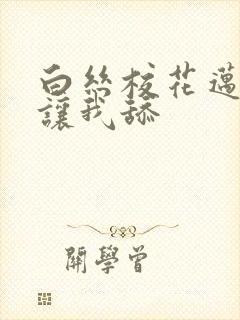 白絲校花邁
讓我舔
關學曾